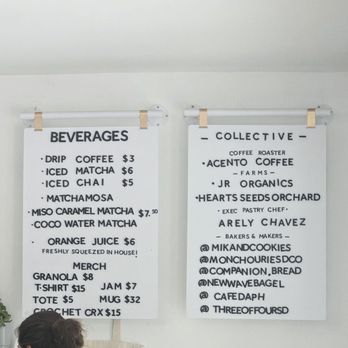 BEVERAGES
• DRIP COFFEE $3
• ICED MATCHA $6
• ICED CHAI $5
• MATCHAMOSA
• MISO CARAMEL MATCHA $7.50
• COCO WATER MATCHA
• ORANGE JUICE $6
FRESHLY SQUEEZED IN HOUSE!
MERCH
GRANOLA $8
T-SHIRT $15 JAM $7
TOTE $5 MUG $32
CROCHET CRX $15
— COLLECTIVE —
COFFEE ROASTER
• ACENTO COFFEE
— FARMS —
• JR ORGANICS
• HEARTS SEEDS ORCHARD
• EXEC PASTRY CHEF •
ARELY CHAVEZ
— BAKERS & MAKERS —
@ MIKANDCOOKIES
@ MONCHOURIESDCO
@ COMPANION_BREAD
@ NEWWAVEBAGEL
@ CAFEDAPH
@ THREEOFFOURSD